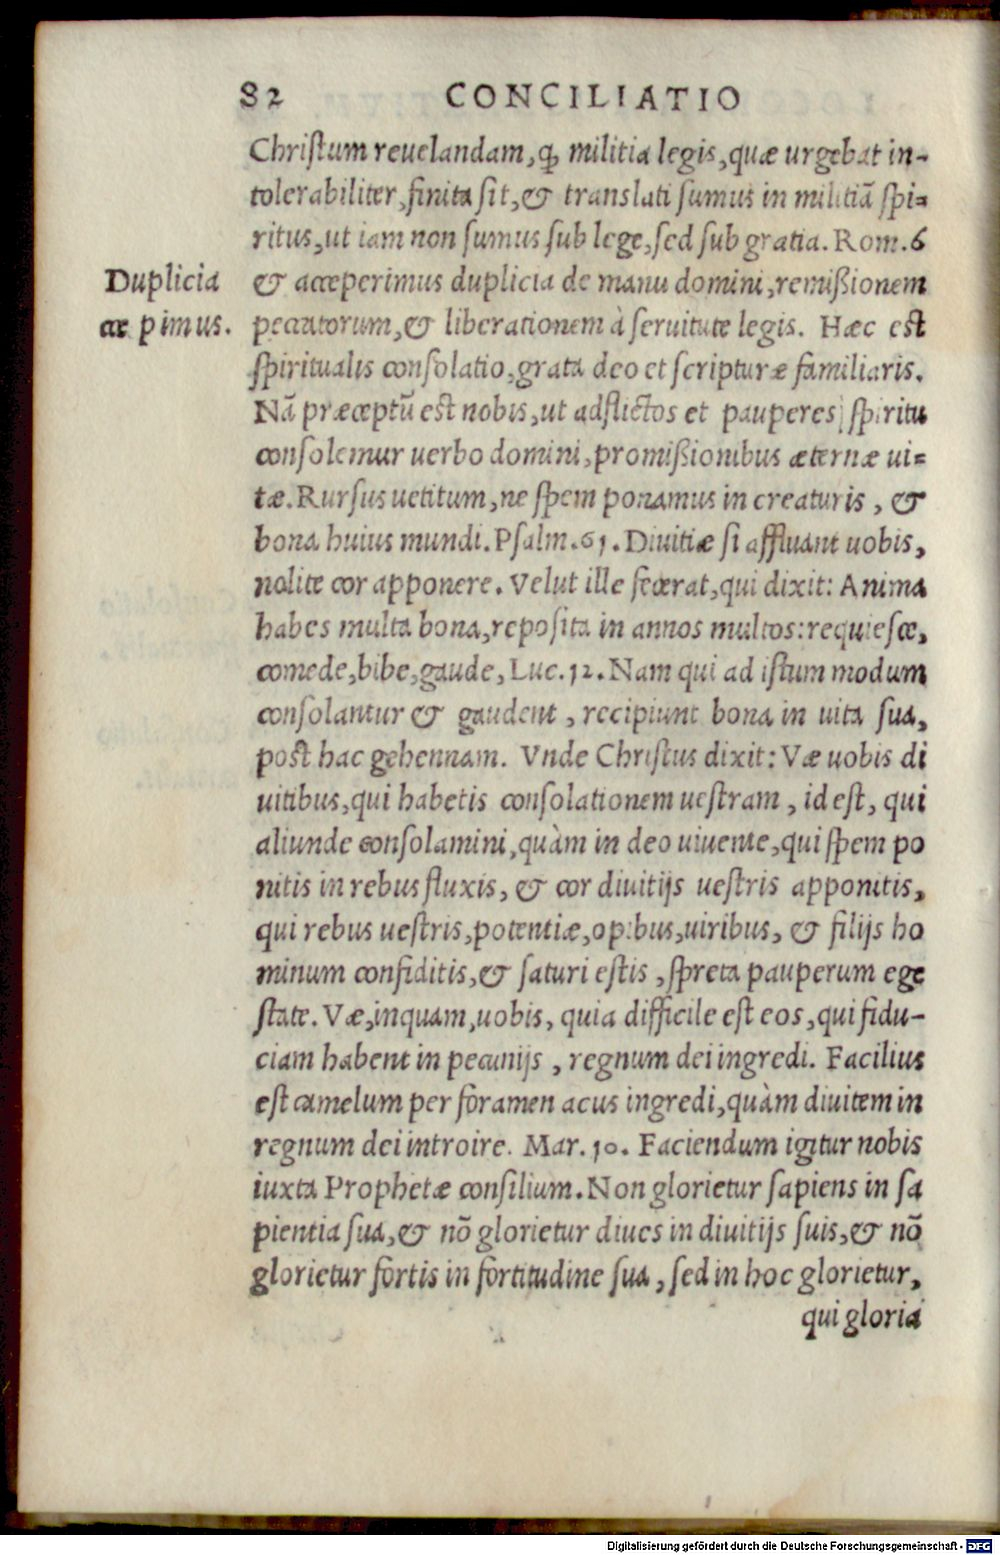 82 CONCILIATIO
Christum reuelandam, ꝙ militia legis, quæ urgebat in-
tolerabiliter, finita sit, & translati sumus in militiā spi=
ritus, ut iam non sumus sub lege, sed sub gratia. Rom. 6
Duplicia
accepimus.
& acceperimus duplicia de manu domini, remißionem
peccatorum, & liberationem à seruitute legis. Hæc est
spiritualis consolatio, grata deo et scripturæ familiaris.
Nā præceptū est nobis, ut adflictos et pauperes spiritu
consolemur uerbo domini, promißionibus æternæ ui=
tæ. Rursus uetitum, ne spem ponamus in creaturis, &
bona huius mundi. Psalm. 61. Diuitiæ si affluant uobis,
nolite cor apponere. Velut ille fecerat, qui dixit: Anima
habes multa bona, reposita in annos multos: requiesce,
comede, bibe, gaude, Luc. 12. Nam qui ad istum modum
consolantur & gaudent, recipiunt bona in uita sua,
post hac gehennam. Vnde Christus dixit: Væ uobis di
uitibus, qui habetis consolationem uestram, id est, qui
aliunde consolamini, quàm in deo uiuente, qui spem po
nitis in rebus fluxis, & cor diuitijs uestris apponitis,
qui rebus uestris, potentiæ, opibus, uiribus, & filijs ho
minum confiditis, & saturi estis, spreta pauperum ege
state. Væ, inquam, uobis, quia difficile est eos, qui fidu-
ciam habent in pecunijs, regnum dei ingredi. Facilius
est camelum per foramen acus ingredi, quàm diuitem in
regnum dei introire. Mar. 10. Faciendum igitur nobis
iuxta Prophetæ consilium. Non glorietur sapiens in sa
pientia sua, & nō glorietur diues in diuitijs suis, & nō
glorietur fortis in fortitudine sua, sed in hoc glorietur,
qui gloria
Digitalisierung gefördert durch die Deutsche Forschungsgemeinschaft - DFG